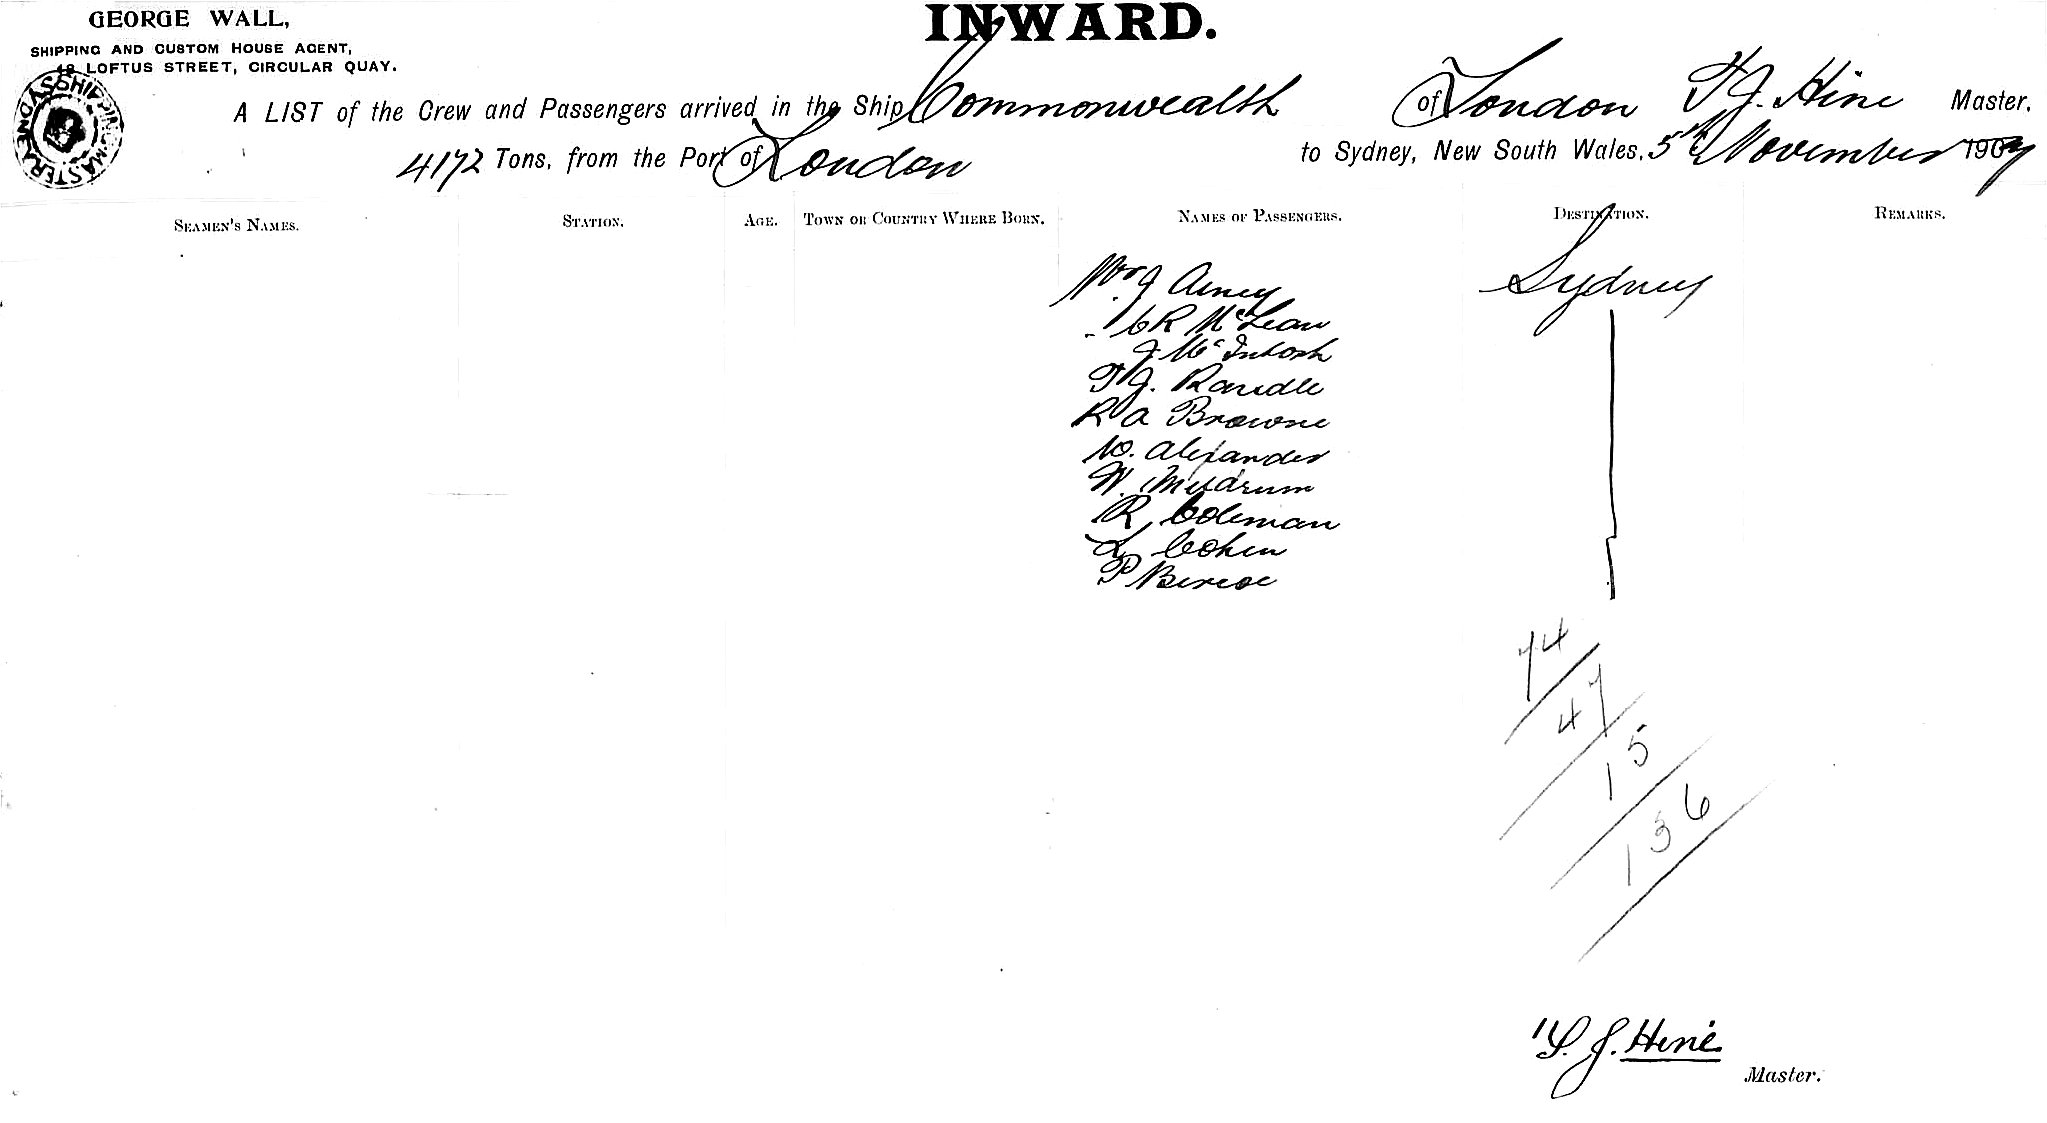 GEORGE WALL,
SHIPPING AND CUSTOM HOUSE AGENT,
LOFTUS STREET, CIRCULAR QUAY.
SHIPPING MASTER SYDNEY
INWARD.
A LIST of the Crew and Passengers arrived in the Ship Commonwealth of London T J. Hine Master.
4172 Tons, from the Port of London to Sydney, New South Wales, 5th November 1907
SEAMEN'S NAMES. STATION. AGE. TOWN OR COUNTRY WHERE BORN. NAMES OF PASSENGERS. DESTINATION. REMARKS.
J Sydney
C R McLean
J McIntosh
T J. Randle
R A Browne
W. Alexander
W. Muldrum
R Coleman
L Cohen
P
74
47
15
136
J. Hine
Master.